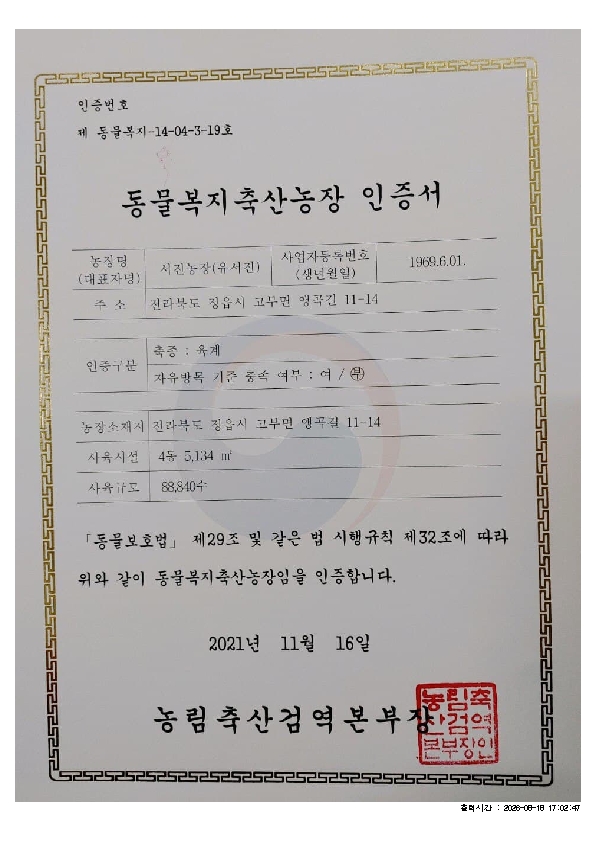 인증번호
제 동물복지-14-04-3-19호
동물복지축산농장 인증서
농장명
(대표자명)
서진농장(유서진)
사업자등록번호
(생년월일)
1969.6.01.
주 소
전라북도 정읍시 고부면 앵곡길 11-14
인증구분
축종 : 육계
자유방목 기준 충족 여부 : 여 / 부
농장소재지
전라북도 정읍시 고부면 앵곡길 11-14
사육시설
4동 5,134 ㎡
사육규모
88,840수
「동물보호법」 제29조 및 같은 법 시행규칙 제32조에 따라
위와 같이 동물복지축산농장임을 인증합니다.
2021년 11월 16일
농림축산검역본부장
농림축
산검역
본부장인
출력시간 : 2026-06-18 17:02:47